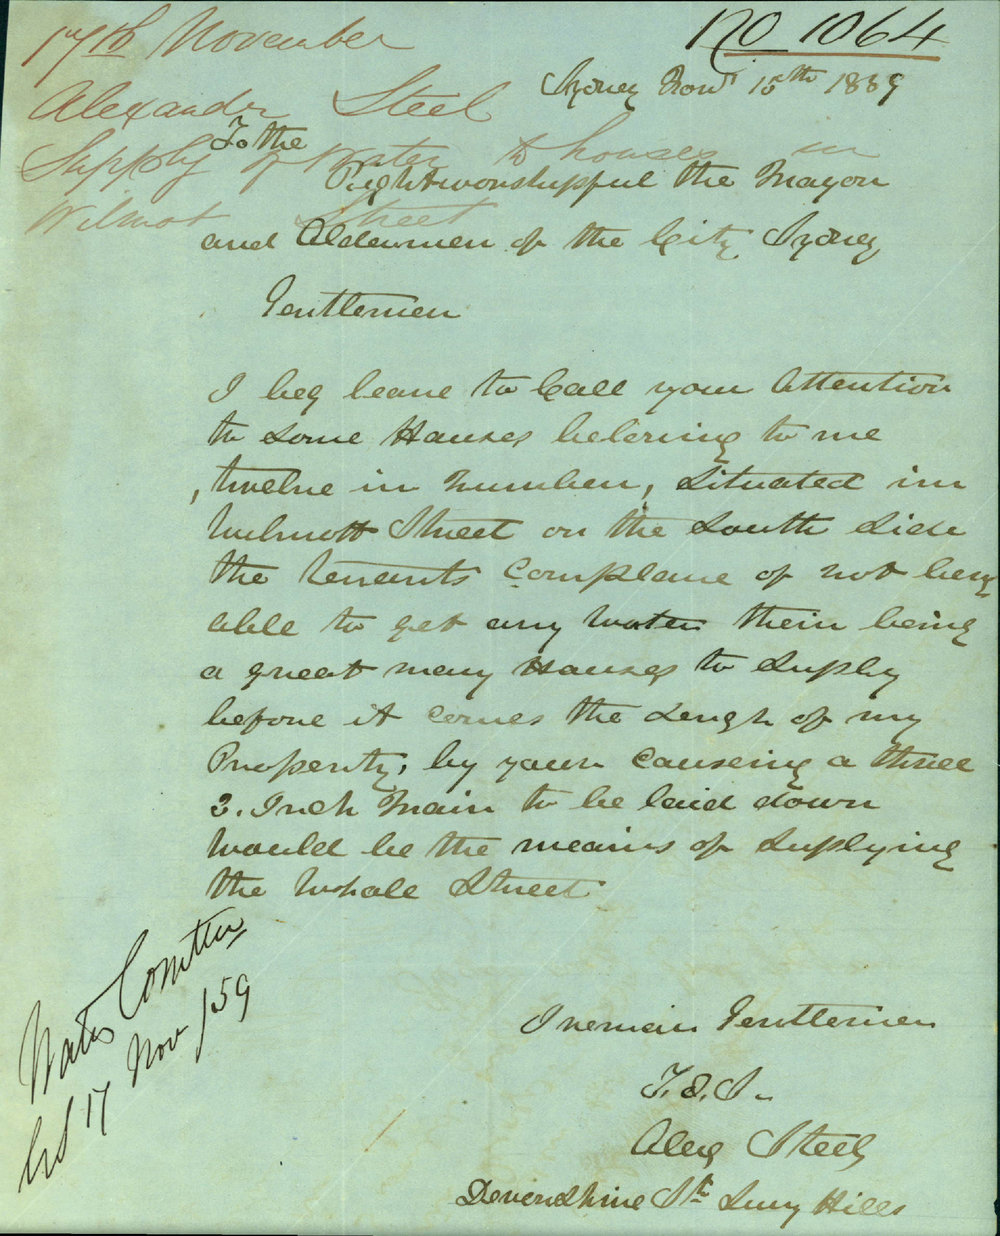 No 1064
17th November
Alexander Steel
Supply of Water to houses in
Wilmot Street
Sydney Novr 15th 1859
To the
Rightworshipful the Mayor
and Aldermen of the City Sydney
Gentlemen
I beg leave to Call your Attention
to some Houses beloning to me
, twelve in Number, Situated in
Wilmott Street on the South Side
the tenants Complane of not being
able to get any water their being
a great many Houses to Suply
before it comes the Lengh of my
Property, by your causeing a three
3. Inch Main to be laid down
would be the means of Suplying
the whole Street
Water Comttee
17 Nov /59
I remain Gentlemen
Y.O.S.
Alex Steel
Devendshire St Surry Hills